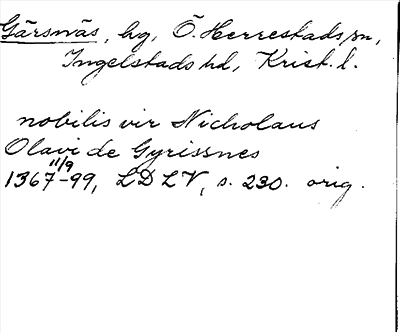 Gärsnäs, hg, Ö. Herrestads sn,
Ingelstads hd, Krist. l.
nobilis vir Nicholaus
Olavi de Gyrissnes
1367 11/9-99, LDLV, s. 230. orig.